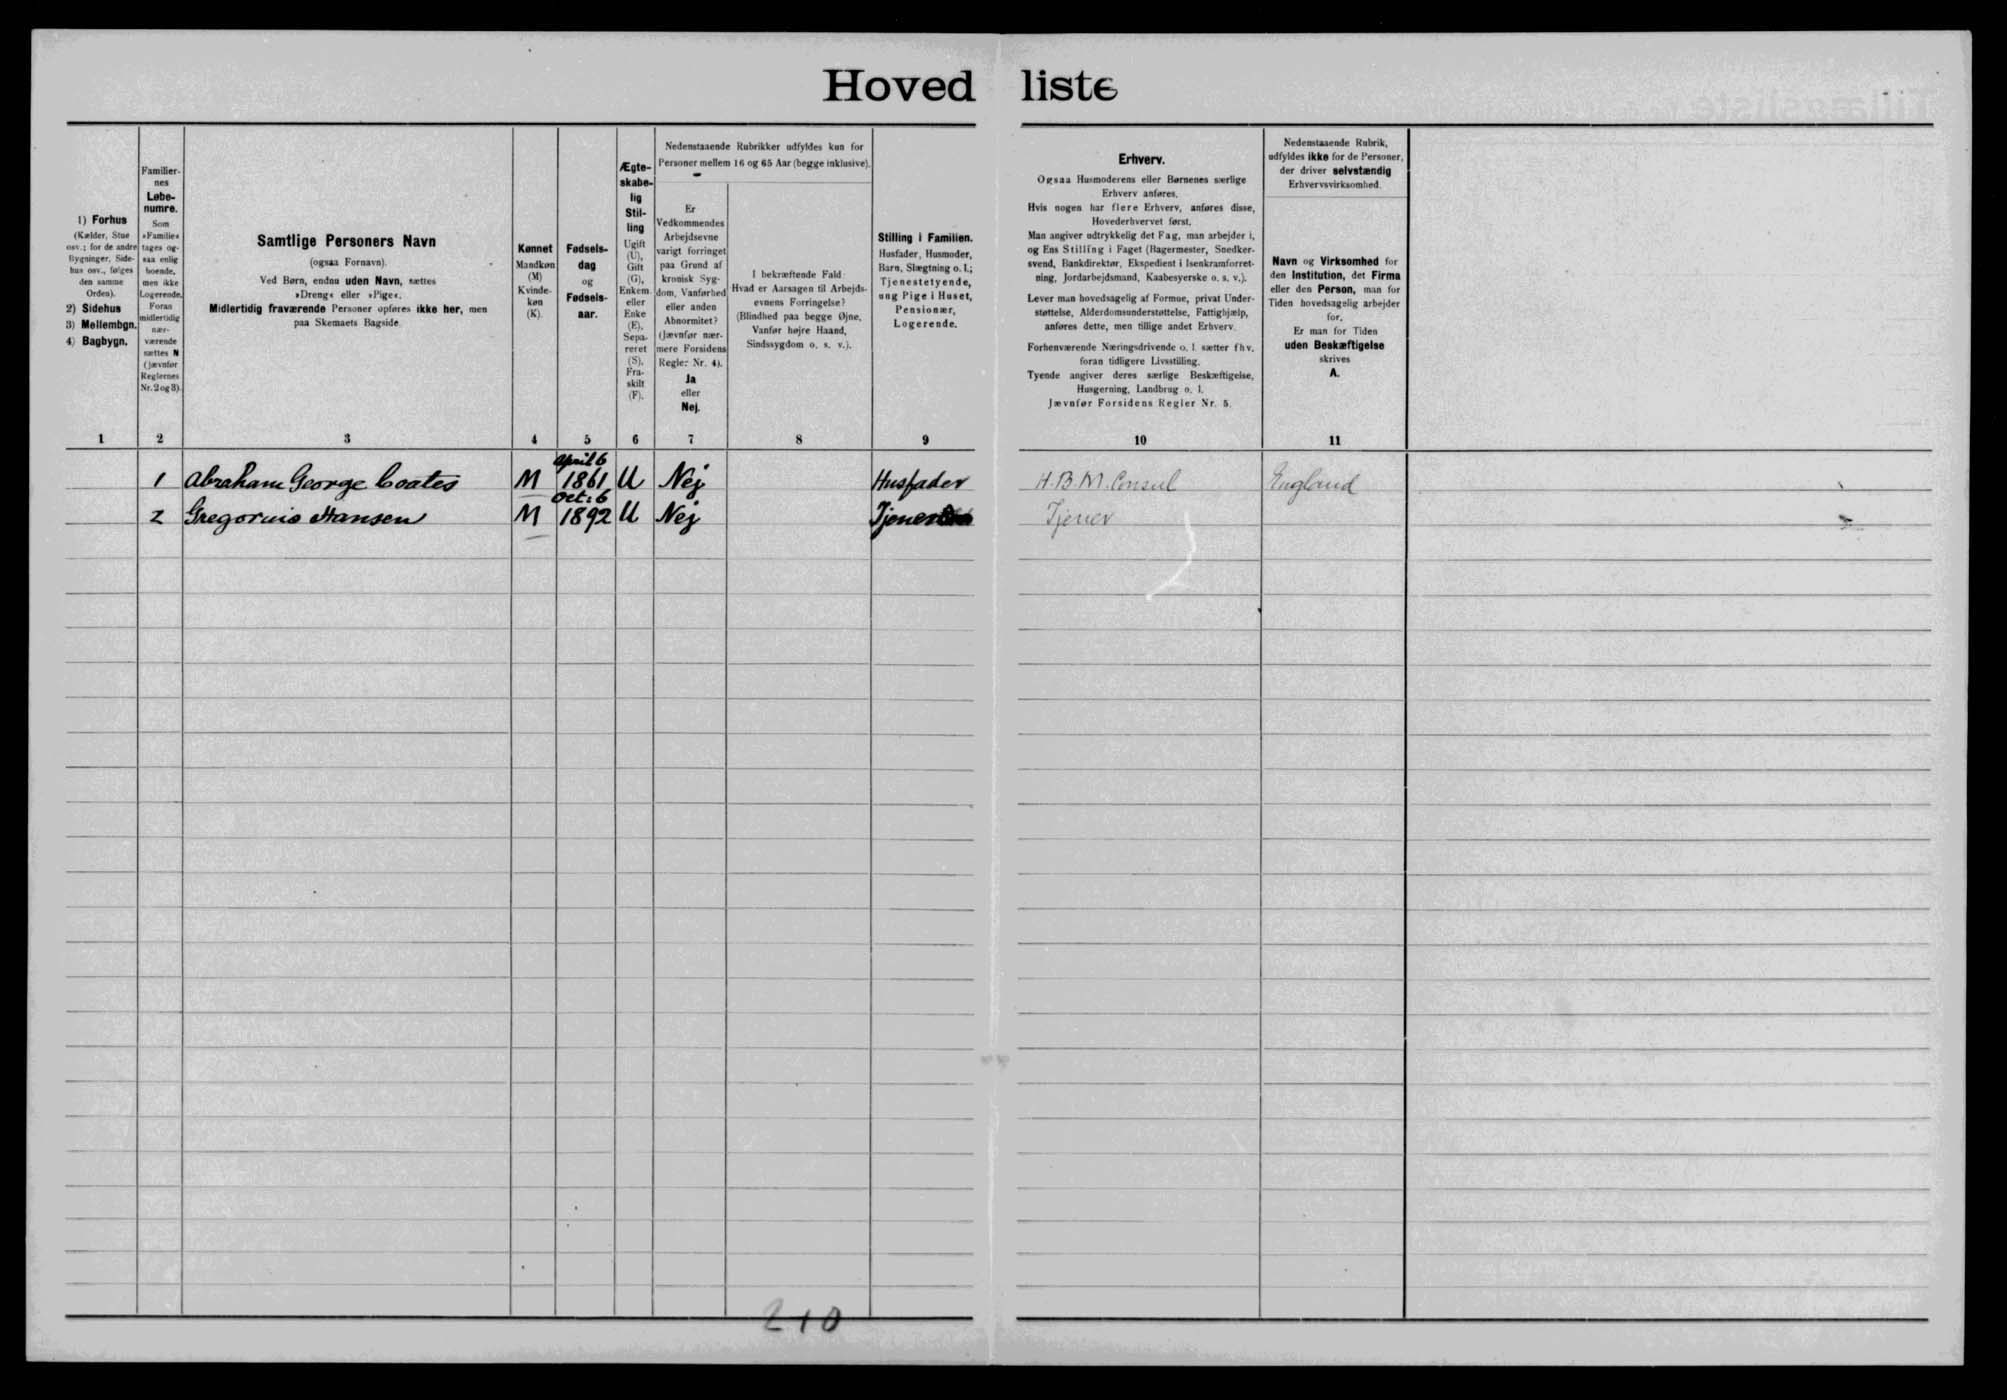 Hoved liste
1) Forhus
(Kælder, Stue
osv.; for de andre
Bygninger, Side-
hus osv., følges
den samme
Orden).
2) Sidehus
3) Mellembgn.
4) Bagbygn.
Familier-
nes
Løbe-
numre.
Som
»Familie«
tages og-
saa enlig
boende,
men ikke
Logerende.
Foran
midlertidig
nær-
værende
sættes N
(jævnfør
Reglernes
Nr. 2 og 3).
Samtlige Personers Navn
(ogsaa Fornavn).
Ved Børn, endnu uden Navn, sættes
»Dreng« eller »Pige«.
Midlertidig fraværende Personer opføres ikke her, men
paa Skemaets Bagside.
Kønnet
Mandkøn
(M)
Kvinde-
køn
(K).
Fødsels-
dag
og
Fødsels-
aar.
Ægte-
skabe-
lig
Stil-
ling
Ugift
(U),
Gift
(G),
Enkem.
eller
Enke
(E),
Sepa-
reret
(S),
Fra-
skilt
(F).
Nedenstaaende Rubrikker udfyldes kun for
Personer mellem 16 og 65 Aar (begge inklusive).
Er
Vedkommendes
Arbejdsevne
varigt forringet
paa Grund af
kronisk Syg-
dom, Vanførhed
eller anden
Abnormitet?
(Jævnfør nær-
mere Forsidens
Regler Nr. 4).
Ja
eller
Nej.
I bekræftende Fald:
Hvad er Aarsagen til Arbejds-
evnens Forringelse?
(Blindhed paa begge Øjne,
Vanfør højre Haand,
Sindssygdom o. s. v.).
Stilling i Familien.
Husfader, Husmoder,
Barn, Slægtning o. l.;
Tjenestetyende,
ung Pige i Huset,
Pensionær,
Logerende.
Erhverv.
Ogsaa Husmoderens eller Børnenes særlige
Erhverv anføres.
Hvis nogen har flere Erhverv, anføres disse,
Hovederhvervet først.
Man angiver udtrykkelig det Fag, man arbejder i,
og Ens Stilling i Faget (Bagermester, Snedker-
svend, Bankdirektør, Ekspedient i Isenkramforret-
ning, Jordarbejdsmand, Kaabesyerske o. s. v.).
Lever man hovedsagelig af Formue, privat Under-
støttelse, Alderdomsunderstøttelse, Fattighjælp,
anføres dette, men tillige andet Erhverv.
Forhenværende Næringsdrivende o. l. sætter fhv.
foran tidligere Livsstilling.
Tyende angiver deres særlige Beskæftigelse,
Husgerning, Landbrug o. l.
Jævnfør Forsidens Regler Nr. 5.
Nedenstaaende Rubrik,
udfyldes ikke for de Personer,
der driver selvstændig
Erhvervsvirksomhed.
Navn og Virksomhed for
den Institution, det Firma
eller den Person, man for
Tiden hovedsagelig arbejder
for.
Er man for Tiden
uden Beskæftigelse
skrives
A.
1 2 3 4 5 6 7 8 9 10 11
April 6
1 Abraham George Coates M 1861 U Nej Husfader H.B.M. Consul England
Oct: 6
2 Gregorius Hansen M 1892 U Nej Tjener Tjener
210